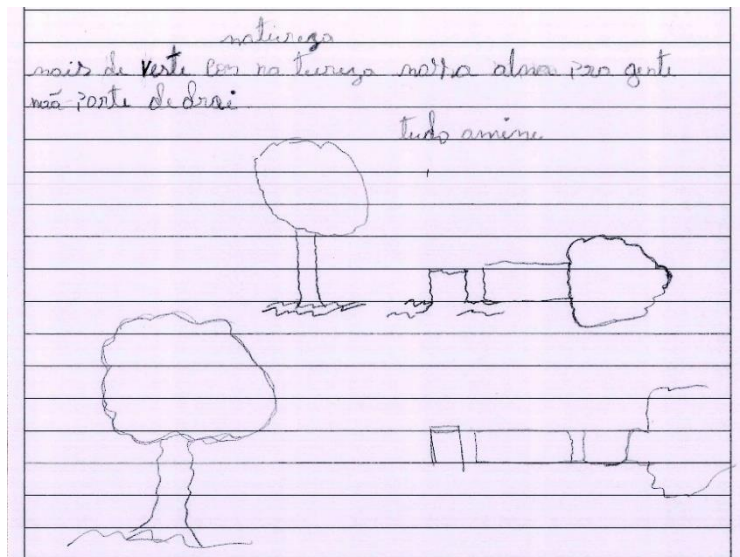 natureza
mais de veste com na tureza nossa alma pra gente
não porte de drai
tudo amine